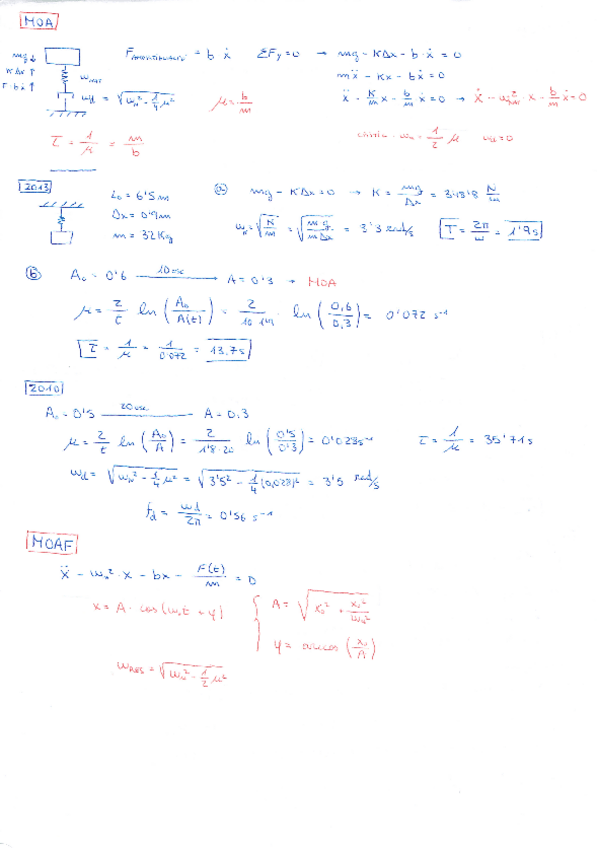 MOA
mg↓ F amortiguador = b ẋ ΣFy = 0 → mg - KΔx - b·ẋ = 0
KΔx ↑ mẍ - Kx - bẋ = 0
bẋ ↑ ωd = √(ωn² - 1/4 μ²) μ = b/m ẍ - K/m x - b/m ẋ = 0 → ẍ - ωn² · x - b/m ẋ = 0
τ = 1/μ = m/b ωn = 1/2 μ ωd = 0
2013
l₀ = 6'5 m ⓐ mg - KΔx = 0 → K = mg/Δx = 348'8 N/m
Δx = 0'9 m
m = 32 Kg ωn = √(K/m) = √(mg/mΔx) = 3'3 rad/s T = 2π/ω = 1'9 s
ⓑ A₀ = 0'6 10 osc → A = 0'3 → MOA
μ = 2/t ln (A₀/A(t)) = 2/10·1'9 · ln (0,6/0,3) = 0'072 s⁻¹
τ = 1/μ = 1/0.072 = 13.7 s
2010
A₀ = 0'5 20 osc A = 0.3
μ = 2/t ln (A₀/A) = 2/1'8·20 ln (0'5/0'3) = 0'028 s⁻¹ τ = 1/μ = 35'71 s
ωd = √(ωn² - 1/4 μ²) = √(3'5² - 1/4 (0,028)²) = 3'5 rad/s
fd = ωd/2π = 0'56 s⁻¹
MOAF
ẍ - ωn² · x - bx - F(t)/m = 0
x = A · cos(ωt + φ) { A = √(x₀² + ẋ₀²/ωn²)
φ = arccos (x₀/A)
ωRES = √(ωn² - 1/2 μ²)